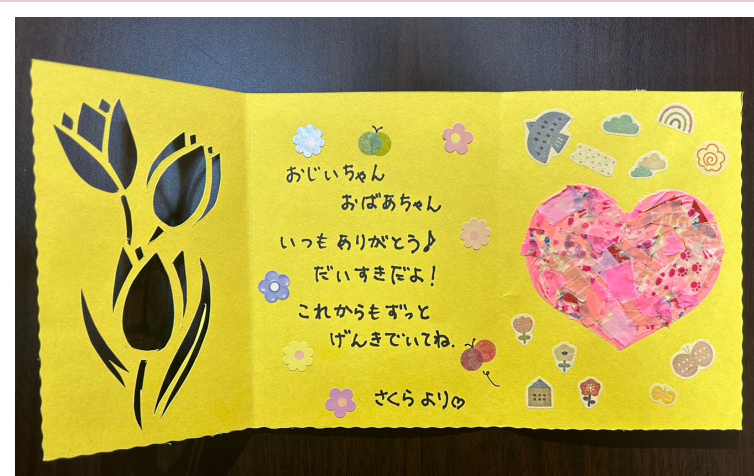 おじいちゃん
おばあちゃん
いつも ありがとう♪
だいすきだよ!
これからもずっと
げんきでいてね.
さくら より♡